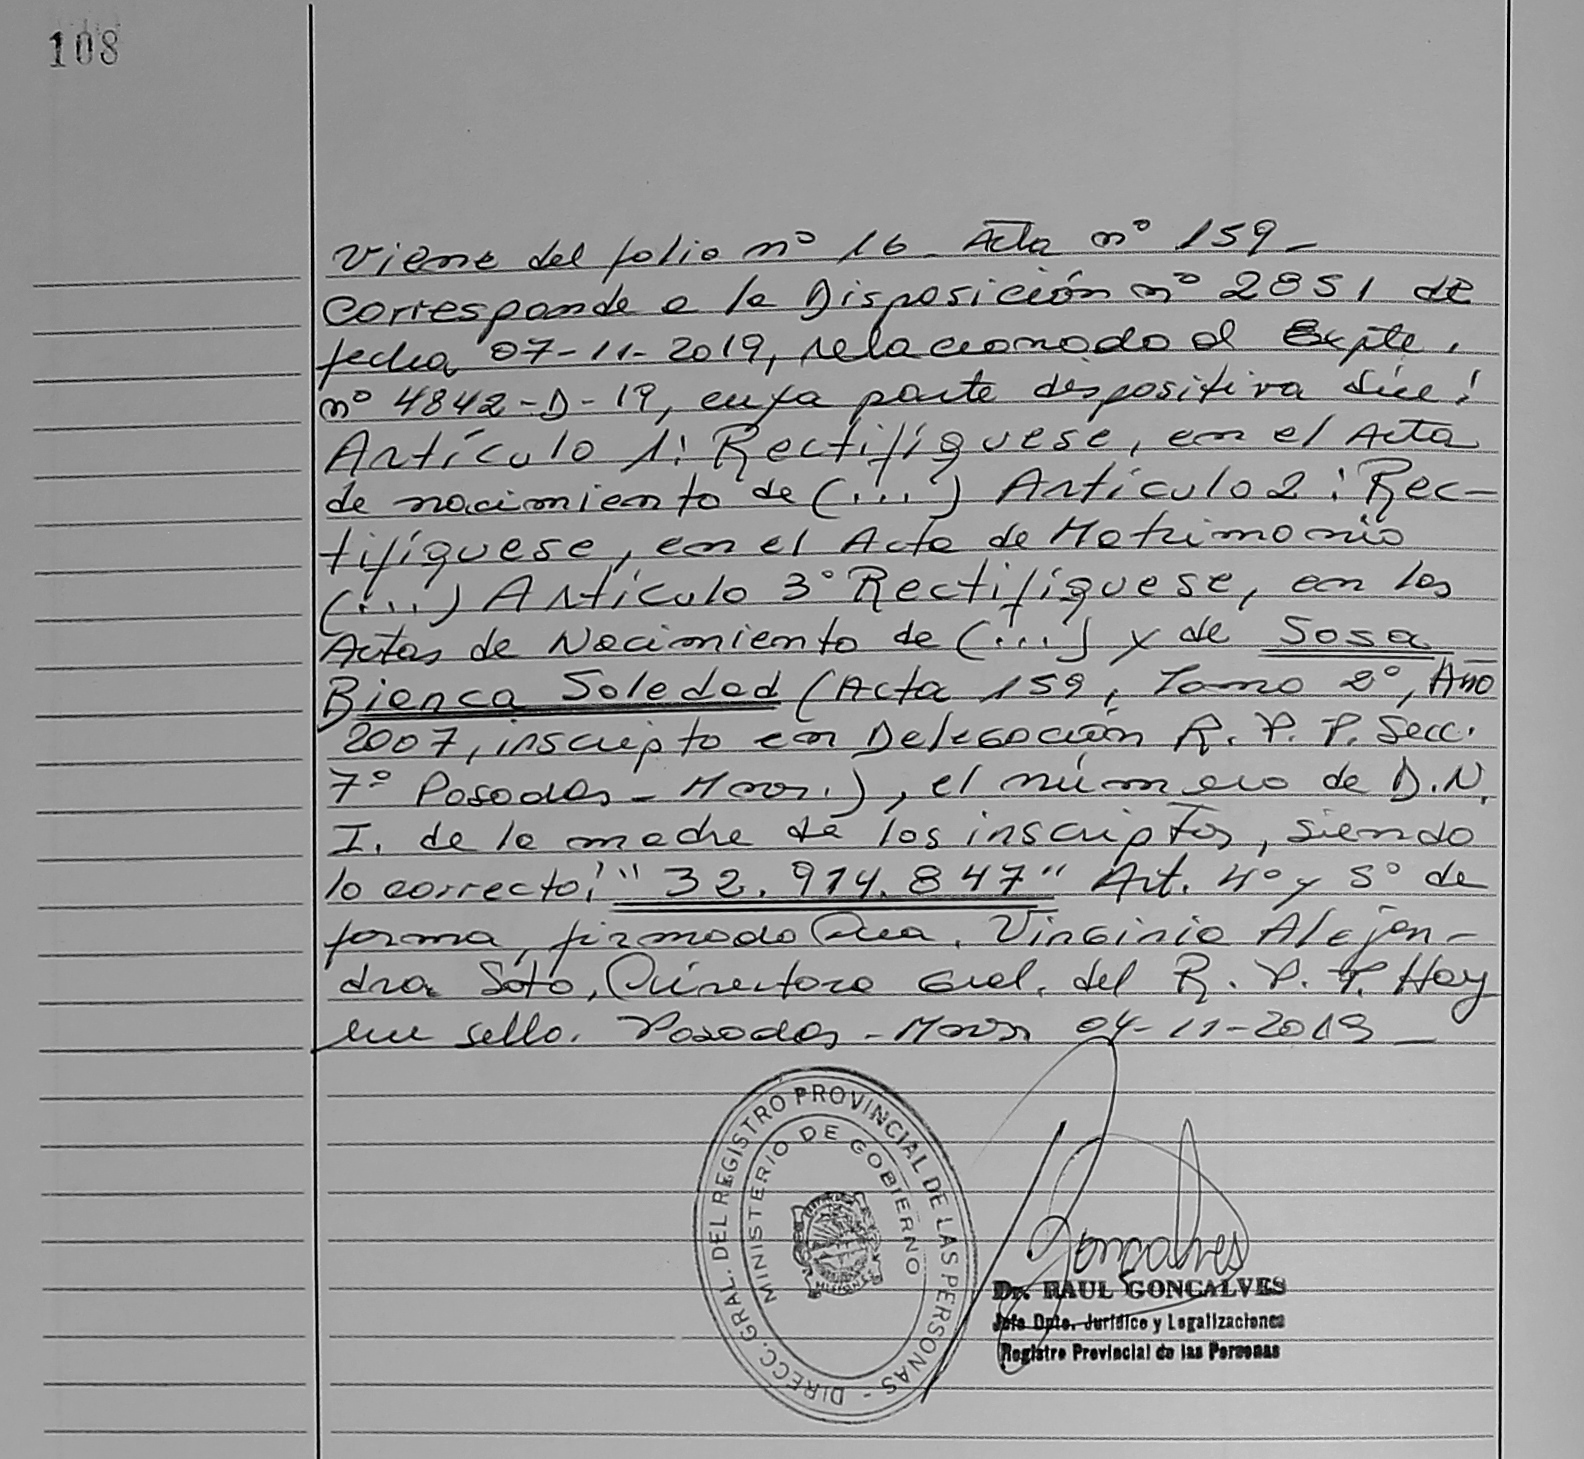 108
Viene del folio nº 16 Acta nº 159_
Corresponde a la Disposición nº 2851 de
fecha 07-11-2019, relacionado al Expte.
nº 4842-D-19, cuya parte dispositiva dice:
Artículo 1: Rectifíquese, en el Acta
de nacimiento de (...) Artículo 2: Rec-
tifíquese, en el Acta de Matrimonio
(...) Artículo 3º Rectifíquese, en los
Actas de Nacimiento de (...) y de Sosa
Bianca Soledad (Acta 159, Tomo 2º, Año
2007, inscripto en Delegación R. P. P. Secc.
7º Posadas - Mnes.), el número de D.N.
I. de la madre de los inscriptos, siendo
lo correcto: "32.914.847" Art. 4º y 5º de
forma, firmado Dra. Virginia Alejan-
dra Soto, Directora Gral. del R. P. P. Hay
un sello. Posadas - Mnes 04-11-2019_
DIRECC. GRAL. DEL REGISTRO PROVINCIAL DE LAS PERSONAS -
MINISTERIO DE GOBIERNO
MISIONES
Goncalves
Dr. RAUL GONCALVES
Jefe Dpto. Jurídico y Legalizaciones
Registro Provincial de las Personas